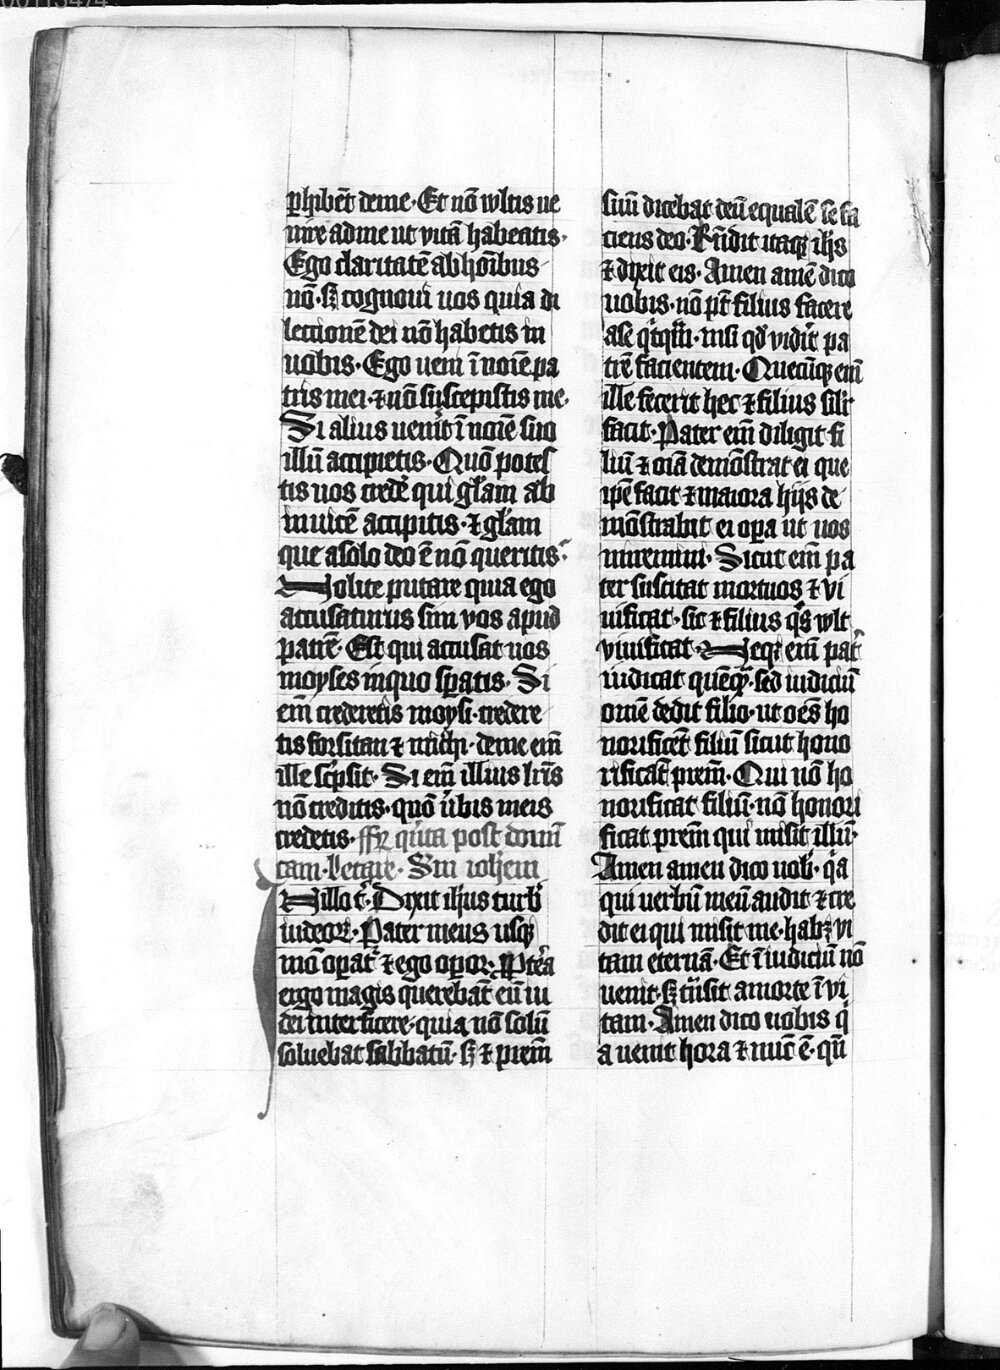 ꝑhibēt de me· Et nō wltis ue
nire ad me ut vitā habeatis·
Ego claritatē ab hōibus
nō· sꝫ cognoui uos quia di
lectionē dei nō habetis in
uobis· Ego ueni ī noīe pa
tris mei· ⁊ nō suscepistis me·
Si alius uenīt ī noīe suo
illū accipietis· Quō potes
tis uos credē qui gl̄am ab
inuicē accipitis· ⁊ gl̄am
que a solo deo ē nō queritis·
Nolite putare quia ego
accusaturus sim vos apud
patrē· Est qui accusat uos
moyses in quo sꝑatis· Si
em̄ crederetis moysi· credere
tis forsitan ⁊ michi· de me em̄
ille sc̄psit· Si em̄ illius lr̄is
nō creditis· quō ūbis meis
credetis· qīnta post domī
cam· letare· Sm̄ iohem
In illo t̄· Dixit ihus turb̄
iudeoꝝ· Pater meus usqꝫ
mō oꝑat̄ ⁊ ego oꝑor· Ꝓpt̄ea
ergo magis querebāt eū iu
dei interficere· quia nō solū
soluebat sabbatū· sꝫ ⁊ prēm
suū dicebat deū equalē se fa
ciens deo· Rn̄dit itaqꝫ ihs
⁊ dixit eis· Amen amē dico
uobis· nō pt̄ filius facere
a se qͥcqͣm· nisi qd̄ vidīt pa
trē facientem· Quecūqꝫ em̄
ille fecerit hec ⁊ filius silr̄
facit· Pater em̄ diligit fi
liū ⁊ oīa demōstrat ei que
ip̄e facit ⁊ maiora hijs de
mōstrabit ei oꝑa ut uos
miremini· Sicut em̄ pa
ter suscitat mortuos ⁊ vi
uificat· sic ⁊ filius q̄s wlt
viuificat· Neqꝫ em̄ pat̄
iudicat quēqͣ· sed iudiciū
omē dedit filio· ut oēs ho
norificēt filiū sicut hono
rificāt prēm· Qui nō ho
norificat filiū· nō honori
ficat prēm qui misit illū·
Amen amen dico uob̄· qͥa
qui uerbū meū audit ⁊ cre
dit ei qui misit me· habꝫ vi
tam eternā· Et ī iudiciū nō
uenit· sꝫ trāsit a morte ī vi
tam· Amen dico uobis qͥ
a uenit hora ⁊ nūc ē· qn̄